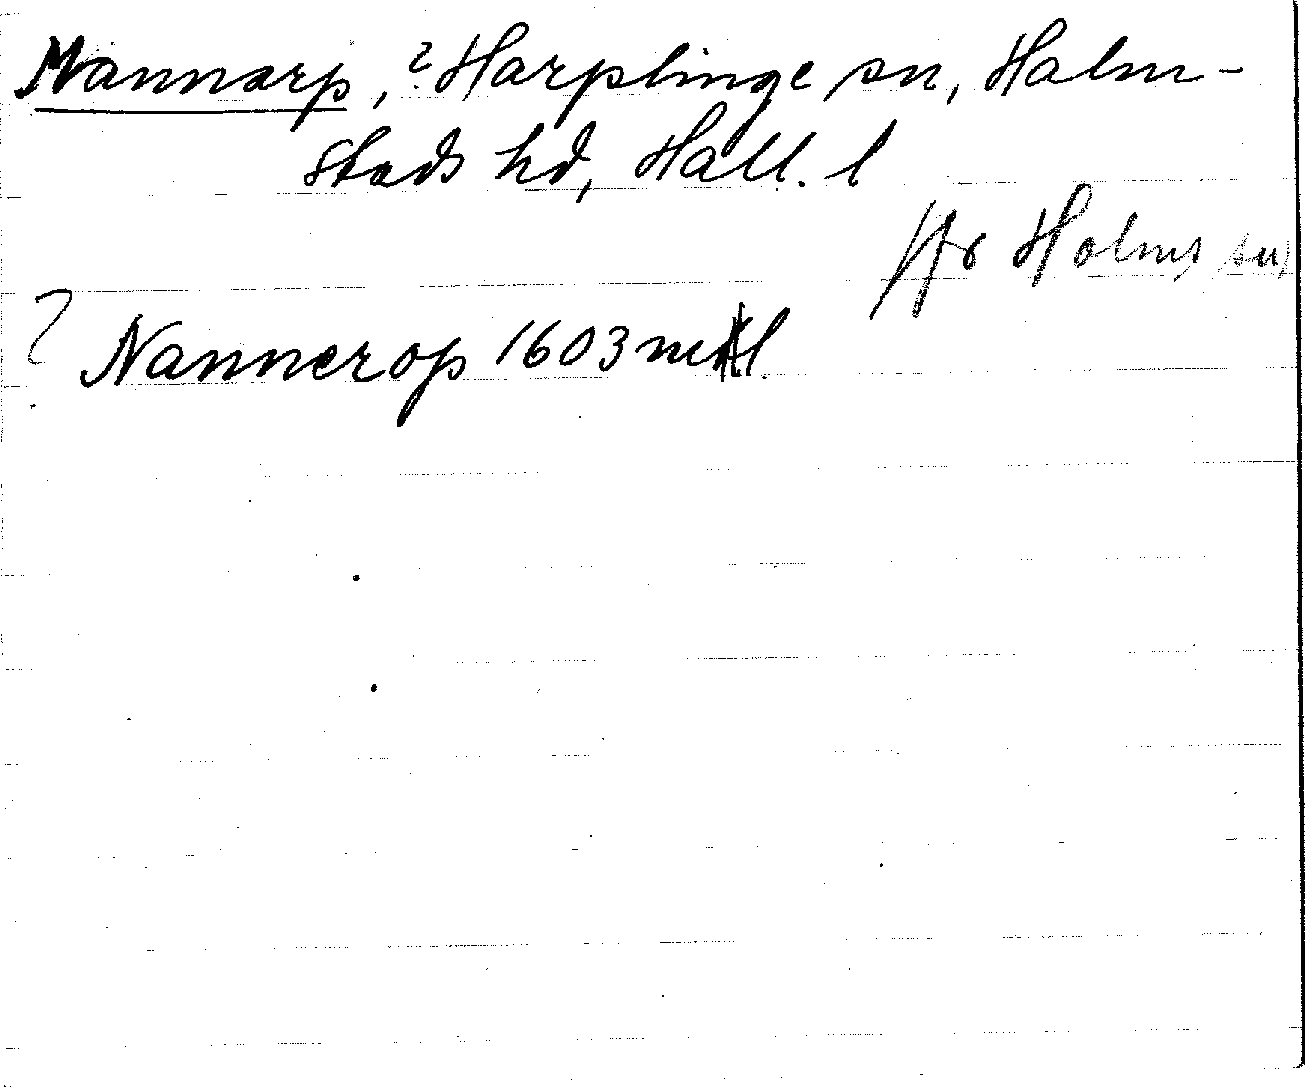 Mannarp, ? Harplinge sn, Halm-
stads hd, Hall. l
Holms sn
? Nannerop 1603 ml